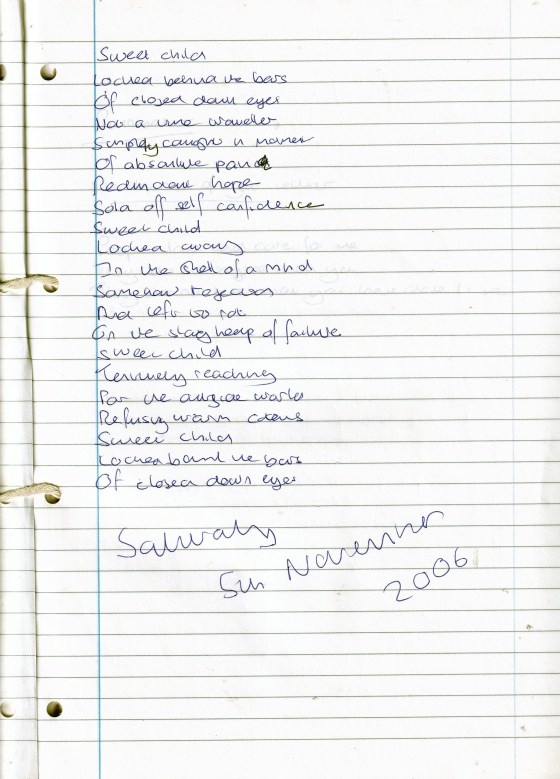 Sweet child
Locked behind the bars
Of closed down eyes
Not a time traveller
Simply caught in moment
Of absolute panic
Redundant hope
Sold off self confidence
Sweet child
Locked away
In the shell of a mind
Somehow rejected
And left to rot
On the slag heap of failure
Sweet child
Tentively reaching
For the outside world
Refusing warm
Sweet child
Locked behind the bars
Of closed down eyes
Saturday
5th November
2006